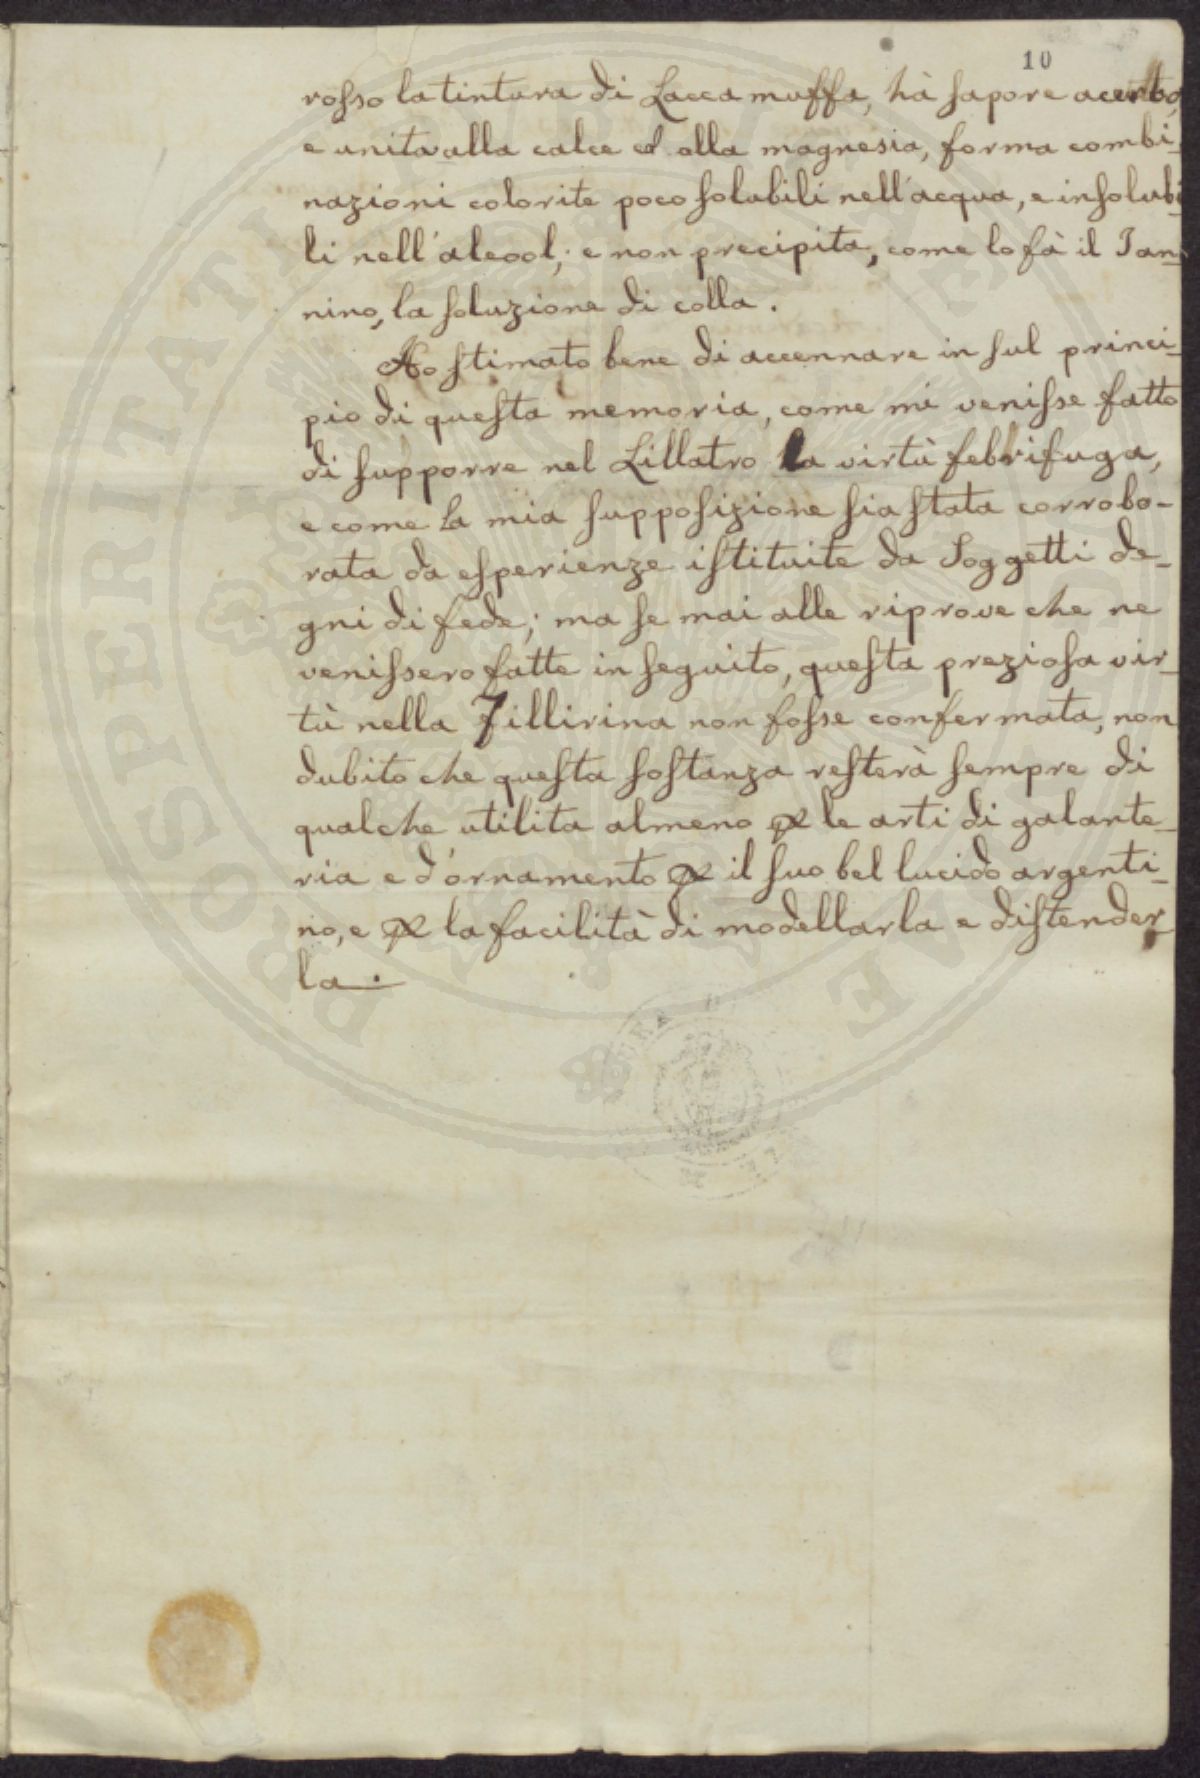 10
rosso la tintura di Lacca muffa, hà sapore acerbo,
e unita alla calce ed alla magnesia, forma combi-
nazioni colorite poco solubili nell'acqua, e insolubi-
li nell'alcool; e non precipita, come lo fà il Tan-
nino, la soluzione di colla.
Ho stimato bene di accennare in sul princi-
pio di questa memoria, come mi venisse fatto
di supporre nel Lillatro la virtù febrifuga,
e come la mia supposizione sia stata corrobo-
rata da esperienze istituite da Soggetti de-
gni di fede; ma se mai alle riprove che ne
venissero fatte in seguito, questa preziosa vir-
tù nella Fillirina non fosse confermata, non
dubito che questa sostanza resterà sempre di
qualche utilita almeno ꝑ le arti di galante-
ria e d'ornamento ꝑ il suo bel lucido argenti-
no, e ꝑ la facilità di modellarla e distender-
la.
PROSPERITATI PUBLICAE